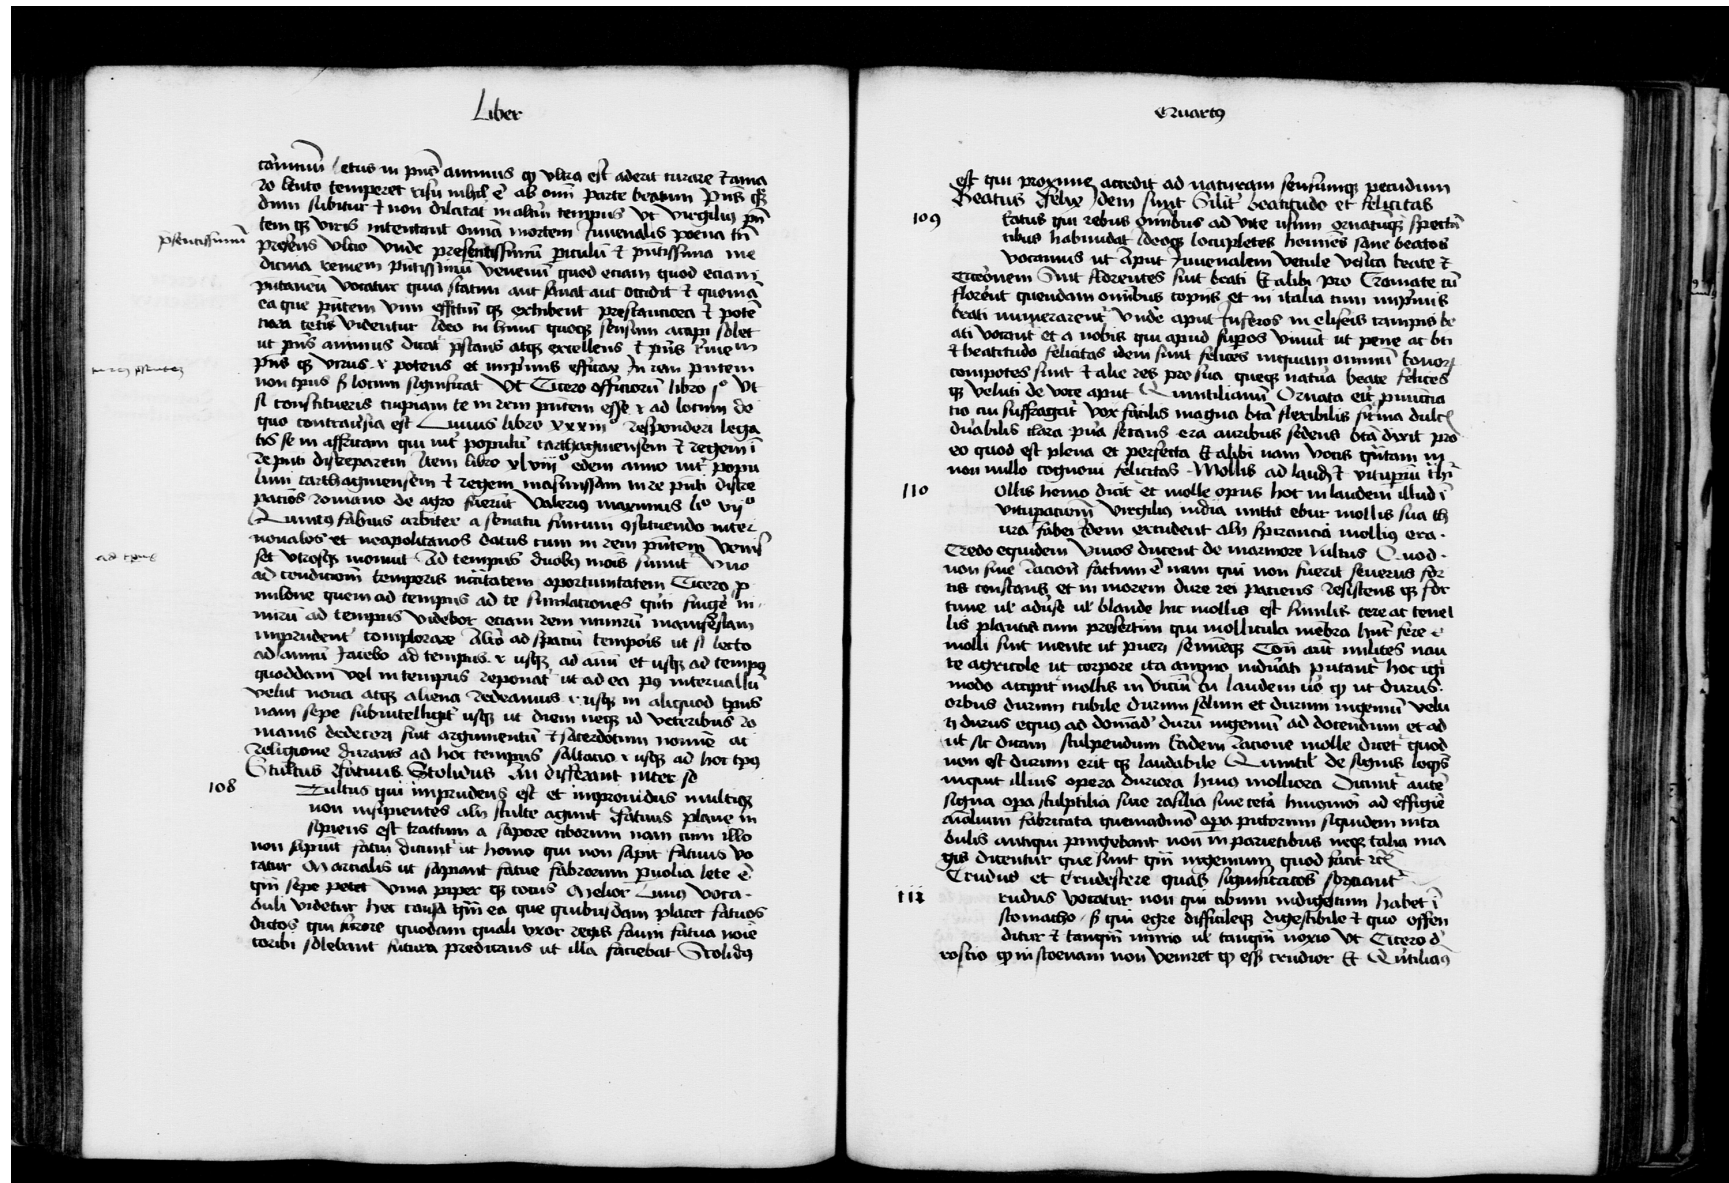 Liber
carminum letus in pñs animus qd ultra est oderit curare et ama
ro lento temperet risu nihil ẽ ab omi parte beatum Pñs qr
dum subitur et non dilatat malum tempus Ut Virgilius pñ
tem qz viris intentant omnia mortem Juvenalis poena tñ
presens ultio Unde presentissimum periculũ et pñtissima me
dicina venem pñtissimũ venenũ quod eciam quod eciam
putaneũ vocatur quia statim aut sanat aut occidit et quoniã
ea que pñtem vim effectũ qz exhibent prestanciora et potẽ
ciora ceteris videntur Ideo in hunc quoqz sensum accipi solet
ut pñs animus dicat pstans atqz excellens et pñs
pñs qz virus .i. potens et inprimis efficax In rem pñtem
non tpus sz locum significat Ut Cicero officiorũ libro i° Ut
si constitueris cupiam te in rem pñtem esse .i. ad locum de
quo contrauersia est Livius libro xxxiiii° responderi lega
tis se in affricam qui int populũ carthaginensem et regem ĩ
re pnti disceptarent Idem libro xlviii° eodem anno int popu
lum carthaginensem et regem masinissam in re pnti disce
ptatos romano de agro fuerũt Valerius maximus li° vii°
Quintus fabius arbiter a senatu finium cstituendo inter
nonalos et neapolitanos datus cum in rem pñtem venis
set utrosqz monuit Ad tempus duobz mõis sumit Uno
ad condicionem temporis ncitatem oportunitatem Cicero p
milone quem ad tempus ad te simulaciones
mirũ ad tempus videbor eciam rem mirũ manifestam
imprudent complorare Alio ad spaciũ temporis ut si lecto
ad annũ Jacebo ad tempus .i. usqz ad annũ et usqz ad tempus
quoddam vel in tempus reponat ut ad ea ps intervallũ
velut nova atqz aliena redeamus .i. usqz in aliquod tpus
nam sepe subintelligit usqz ut diem neqz id veteribus ro
manis dedecori fuit argumentũ et sacerdotum nomẽ ac
religione durans ad hoc tempus saltacio .i. usqz ad hoc tpus
Stultus Fatuus Stolidus An differant inter se
108 Tultus qui imprudens est et improvidus multiqz
non insipientes alij stulte agunt Fatuus plane in
sipiens est tractum a sapore ciborum nam cum illo
non sapiunt fatui dicunt ut homo qui non sapit fatuus vo
catur Marcialis ut sapiant fatue fabrorum prandia bete ẽ
qm sepe petet vina piper qz cocus Melior Livius voca-
buli videtur hec causa qm ea que quibusdam placet fatuos
dictos qui furore quodam quali uxor regis fauni fatua noie
corripi solebant futura predicans ut illa faciebat Stolidus
psentissimũ
in rem psentem
ad tpus
Quartus
est qui proxime accedit ad naturam sensumqz pecudum
Beatus Felix Idem sunt Silit beatitudo et felicitas
109 Eatus qui rebus omibus ad vite usum ornatũqz spectã
tibus habundat Ideoqz locupletes hoines sane beatos
vocamus ut aput Juvenalem vetule vesica beate et
Ciceronem Qui florentes sint beati Et alibi pro Cornate cũ
florerẽt quendam omibus copijs et in italia tum inprimis
beati numerarent Unde aput Inferos in eliseis campis be
ati vocant et a nobis qui apud supos vivũt ut pene ac bti
et beatitudo felicitas idem sunt felices inquam omniũ bonorz
compotes sunt et alie res pro sua queqz natura beate felices
qz veluti de voce aput Quintilianũ Ornata erit pnuncia
tio cui suffragat vox facilis magna bta flexibilis firma dulcis
durabilis clara pura secans era auribus sedens bta dixit pro
eo quod est plena et perfecta Et alibi nam vocis quantam in
non nullo cognovi felicitas . Mollis ad laudẽ et vituperiũ thr
110 Ollis homo dicit et molle opus hoc in laudem illud ĩ
vitupacionẽ Virgilius india mittit ebur mollis sua th
ura sabei Idem excudent alij spirancia mollius era .
Credo equidem vivos ducent de marmore vultus Quod
non sine racione factum ẽ nam qui non fuerit severus for
tis constans et in morem dure rei paciens resistens qz for
tune ul aduse ul blande hic mollis est similis cere ac tenel
lis plantis cum presertim qui mollicula mẽbra hnt fere ẽ
molli sint mente ut pueri femineqz Con aut milites nau
te agricole ut corpore ita animo indurati putant hoc igi
modo accipit mollis in viciũ In laudem vo qd ut durus
orbus durum cubile durum solum et durum ingeniũ velu
ti durus equus ad domãd durũ ingeniũ ad docendum et ad
ut sic dicam sculpendum Eadem racione molle dicet quod
non est durum erit qz laudabile Quintil de signis loqns
inquit illius opera duriora huius molliora Dicunt autẽ
signa opa sculptilia sive rasilia sive cetã huiusmoi ad effigiẽ
aialium fabricata quemadmo opa pictorum siquidem in ta
bulis antiqui pingebant non in parietibus neqz talia ma
gis dicentur que sunt qm ingenium quod facit rcẽ
Crudus et Crudescere quas significatiões sorciant
111 rudus vocatur non qui cibum indigestum habet ĩ
stomacho . sz qui egre difficileqz digestibile et quo offen
ditur et tanqm nimio ul tanqm noxio Ut Cicero d
roscio qd in scoenam non veniret qd esset crudior Et Qntilianus